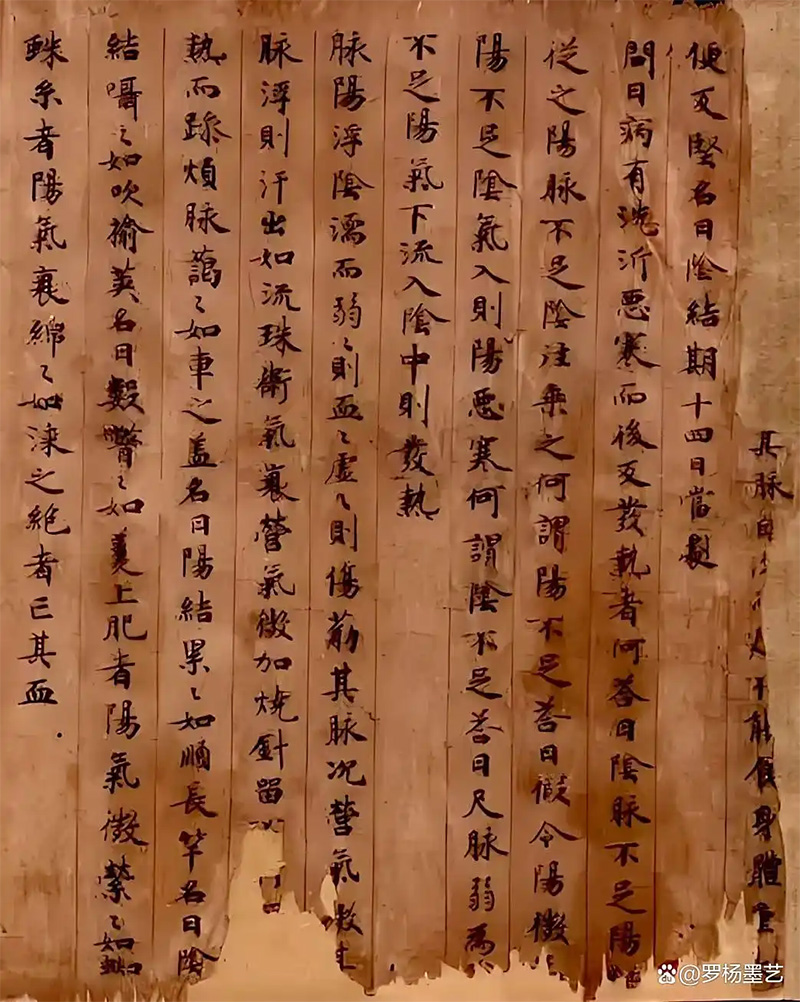 其脉自不能食身體重
便反堅名曰陰結期十四日當劇
問曰病有洗沂惡寒而後反發熱者何荅曰陰脉不足陽
從之陽脉不足陰注乗之何謂陽不足荅曰假令陽微
陽不足陰氣入則陽惡寒何謂陰不足荅曰尺脉弱為
不足陽氣下流入陰中則發熱
脉陽浮陰濡而弱〻則血〻虛〻則傷筋其脉沉營氣微
脉浮則汗出如流珠衛氣衰營氣微加燒針留
熱而躁煩脉藹〻如車之盖名曰陽結累〻如順長竿名曰陰
結囁〻如吹榆莢名曰數瞥〻如羹上肥者陽氣微縈〻如蜘
蛛糸者陽氣衰綿〻如漆之絶者亡其血
@罗杨墨艺